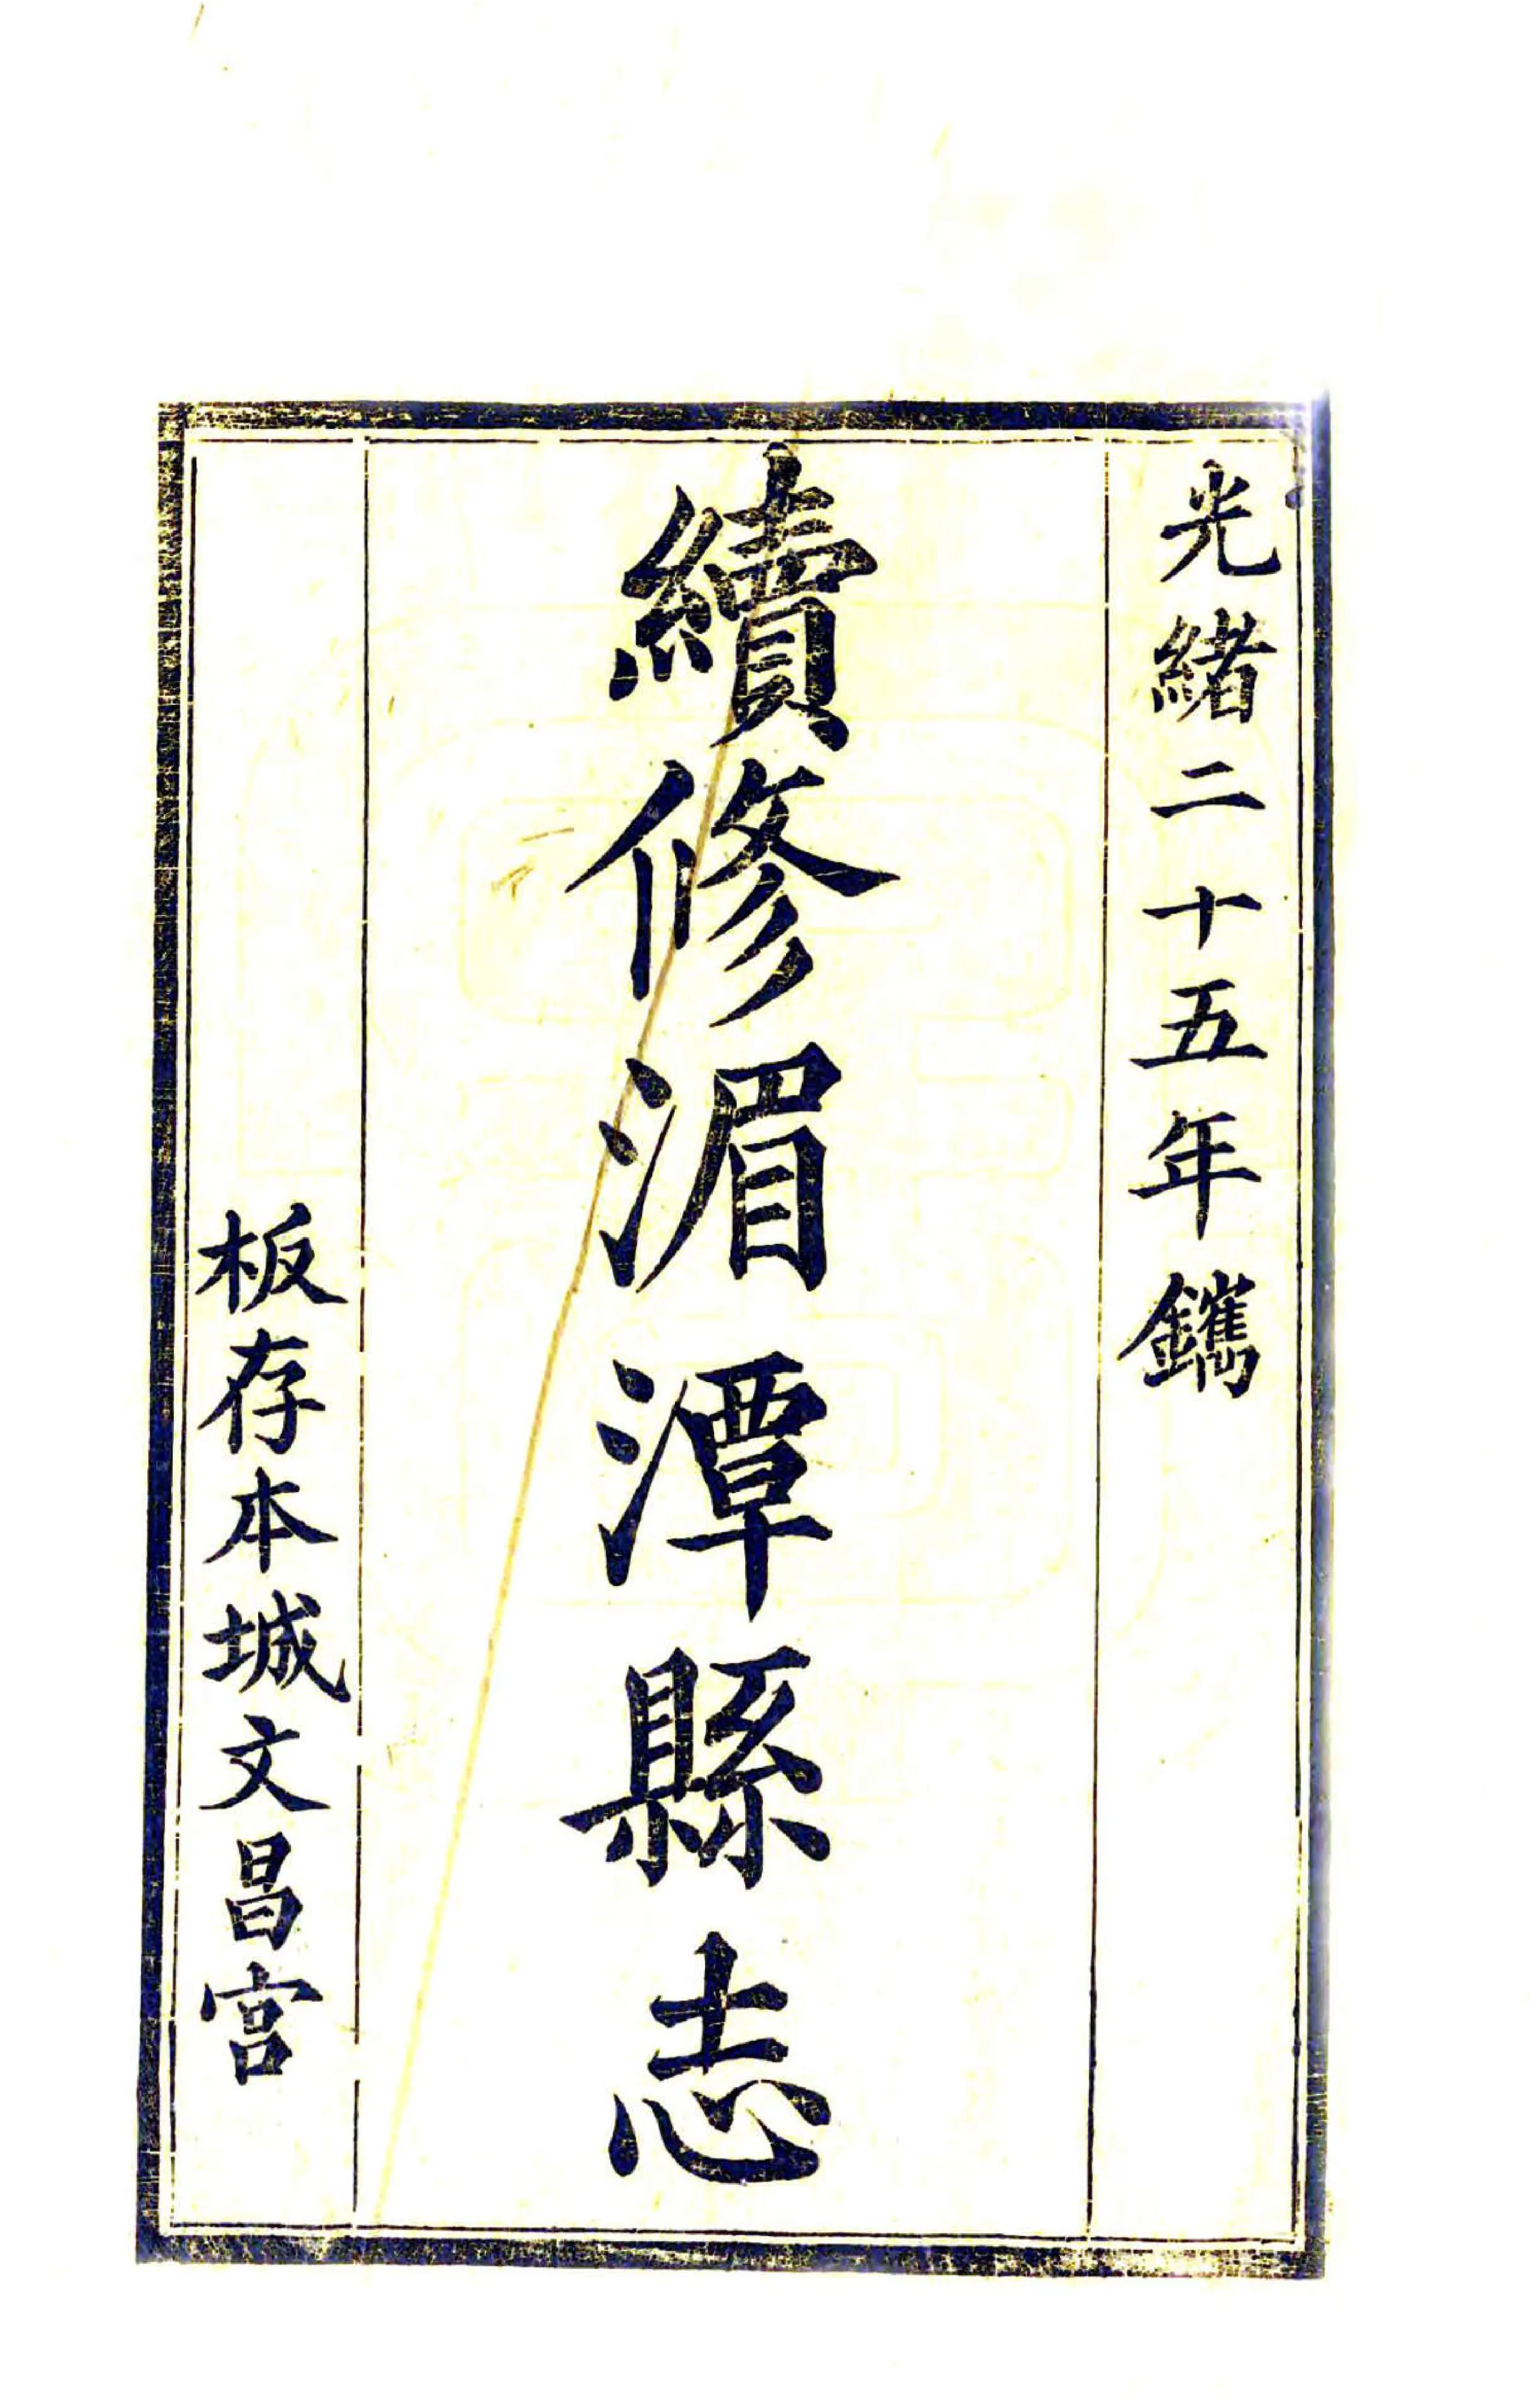 光緒二十五年鐫
續修湄潭縣志
板存本城文昌宮